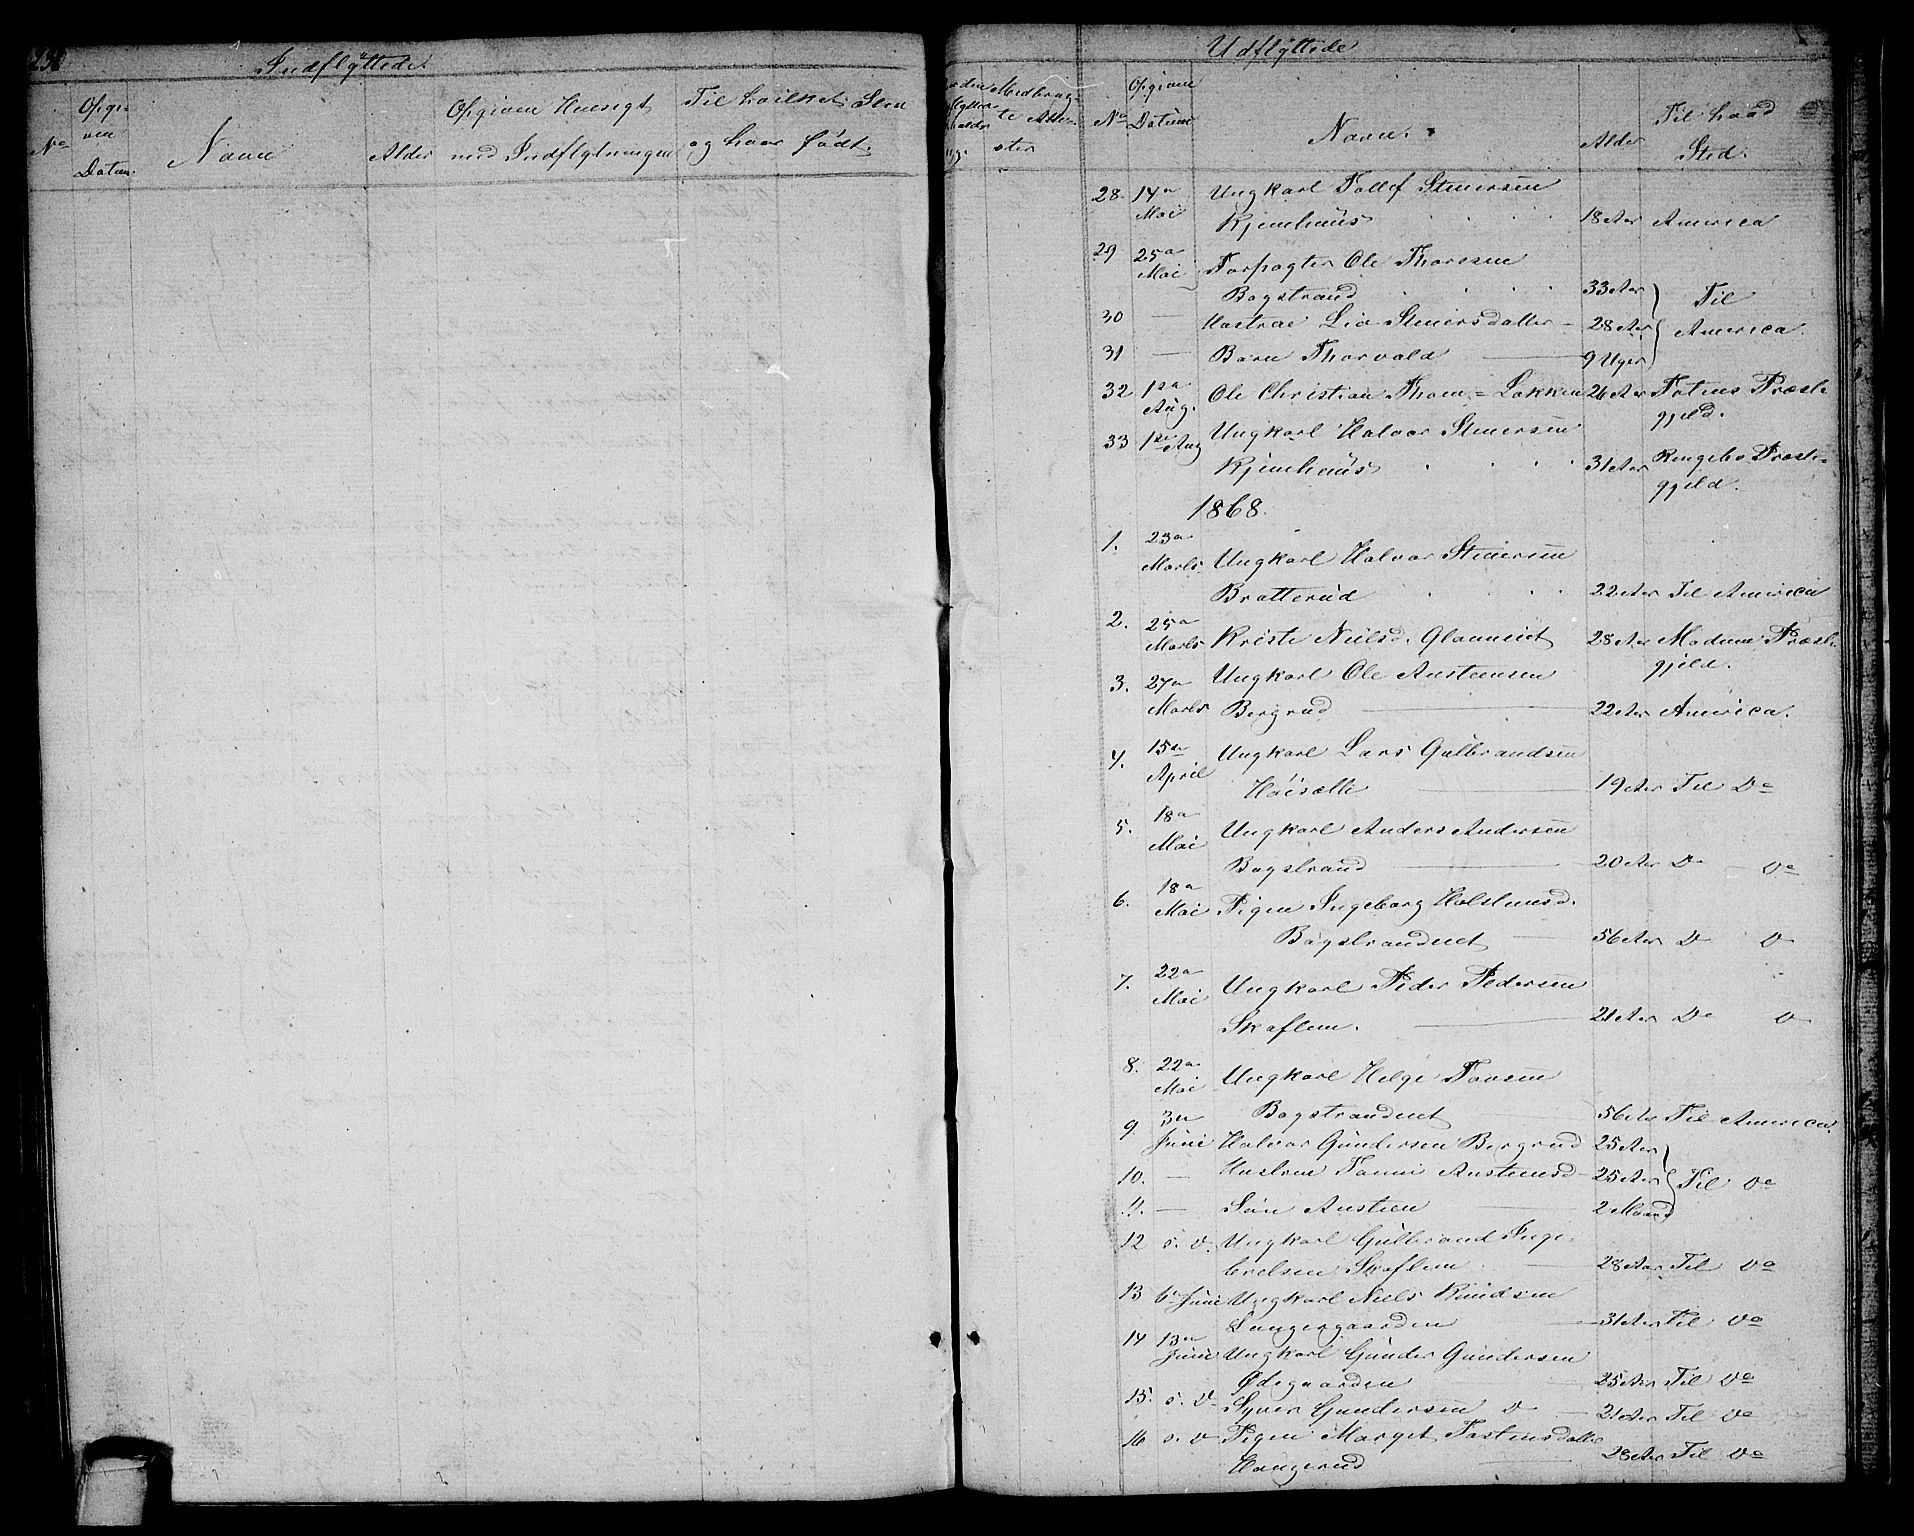 Indflyttede
No
Opgiven Datum.
Navn
Alder
Opgiven Hensigt med Indflytningen
Til hvilket Sted og hvor født.
Medbragte Attester
Udflyttede
No
Opgiven Datum
Navn.
Alder
Til hvad Sted.
28. 14de Mai Ungkarl Tollef Stenersen
Kjemhuus 18 Aar America
29 25de Mai Forpagter Ole Thoresen
Bagstrand 33 Aar
30 — Hustrue Liv Stenersdatter – 28 Aar Til America.
31 — Barn Thorvald — 9 Uger
32 1ste Aug. Ole Christian Thom = Løkken 26 Aar Totens Præste-
gjeld.
33 1ste Aug Ungkarl Halvor Stenersen
Kjemhuus 31 Aar Ringebo Præste-
gjeld.
1868.
1. 23de Marts. Ungkarl Halvor Stenersen
Bratterud 22 Aar Til America
2. 25de Marts Kriste Nielsd. 28 Aar Modums Præste-
gjeld.
3. 27de Marts Ungkarl Ole Austensen
Bergrud — 22 Aar America.
4. 15de April Ungkarl Lars Gulbrandsen
Høisætte — 19 Aar Til Do
5. 18de Mai Ungkarl Anders Andersen
Bagstrand — 20 Aar Do Do
6. 18de Mai Pigen Ingeborg Holstensd.
Bagstrandeiet — 56 Aar D D
7. 22de Mai Ungkarl Peder Pedersen
Skaflem. — 21 Aar Do D
8. 22de Mai Ungkarl Helge Tovsen
Bagstrandeiet — 56 Aar Til America.
9 3de Juni Halvor Gundersen Bergrud 25 Aar
10. — Hustrue Tonni Austensd – 25 Aar Til Do
11. — Søn Austen — 2 Maaned
12 s. D. Ungkarl Gulbrand Inge-
bretsen Skaflem — 28 Aar Til Do
13 6te Juni Ungkarl Niels Knudsen
Langergaarden — 31 Aar Til Do
14 13de Juni Ungkarl Gunder Gundersen
Ødegaarden — 25 Aar Til Do
15. s. D. Syver Gundersen D — 21 Aar Til Do
16 s. D Pigen Marget Tostensdatter
Haugerud — 28 Aar Til Do